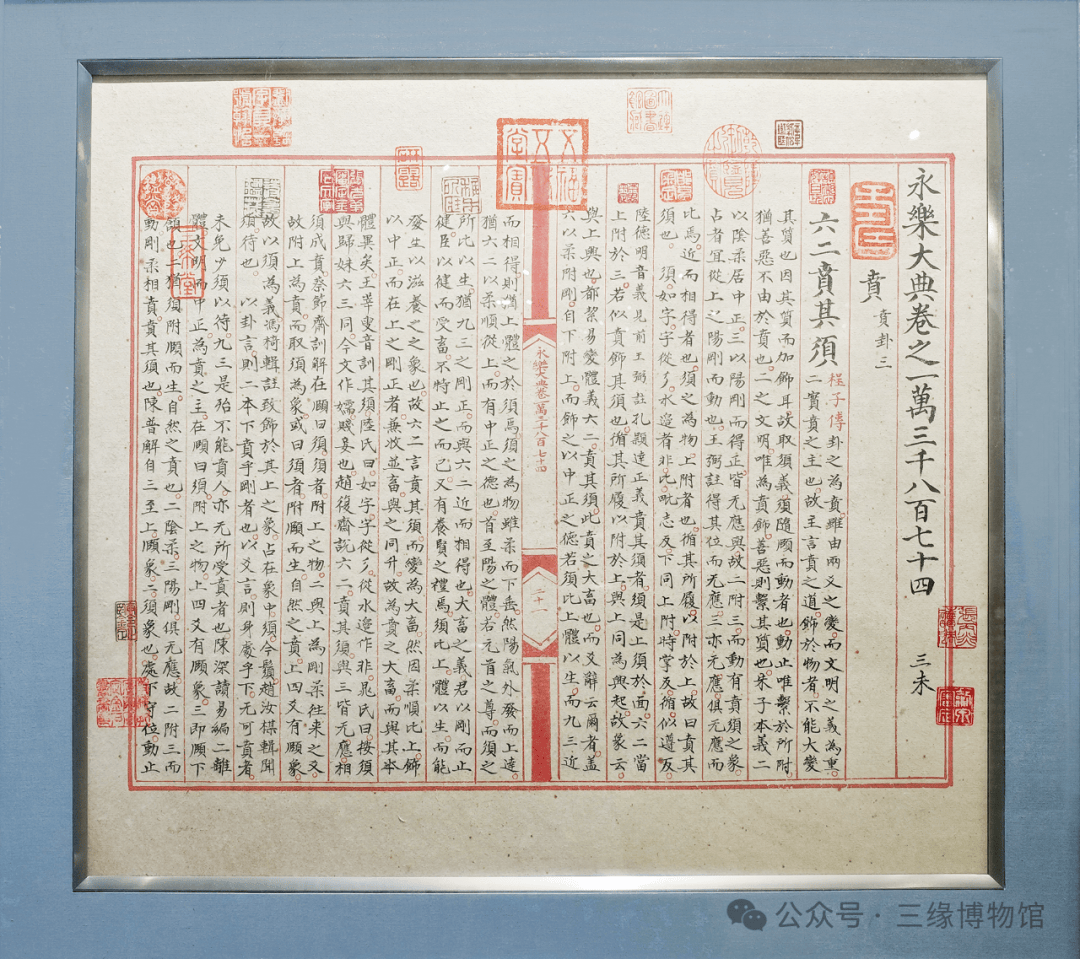 永樂大典卷之一萬三千八百七十四 三未
賁 賁卦三
六二賁其須 程子傳卦之為賁雖由兩爻之變而文明之義為重
二實賁之主也故主言賁之道飾於物者不能大變
其質也因其質而加飾耳故取須義須隨頤而動者也動止唯繫於所附
猶善惡不由於賁也二之文明唯為賁飾善惡則繫其質也朱子本義二
以陰柔居中正三以陽剛而得正皆无應與故二附三而動有賁須之象
占者宜從上之陽剛而動也王弼註得其位而无應三亦无應俱无應而
比焉近而相得者也須之為物上附者也循其所履以附於上故曰賁其
須也須如字字從彡水邊者非比毗志反下同上附時掌反循似遵反
陸德明音義見前王弼註孔穎達正義賁其須者須是上須於面六二當
上附於三若似賁飾其須也循其所履以附於上與上同為興起故象云
與上興也都絜易變體義六二賁其須此賁之大畜也而爻辭云爾者蓋
六以柔附剛自下附上而飾之以中正之德若須比上體以生而九三近
永樂大典卷一萬三千八百七十四
二十一
而相得則猶上體之於須焉須之為物雖柔而下垂然陽氣外發而上達
猶六二以柔順從上而有中正之德也首至陽之體若元首之尊而須之
所比以生猶九三之剛正而與六二近而相得也大畜之義君以剛而止
健臣以健而受畜不特止之而已又有養賢之禮焉須比上體以生而能
發生以滋養之之象也故六二言賁其須而變為大畜然因柔順比上飾
以中正而在上之剛正者兼收並畜與之同升故為賁之大畜而與其本
體異矣王莘叟音訓其須陸氏曰如字字從彡從水邊作非晁氏曰按須
與歸妹六三同今文作嬬賤妾也趙復齋說六二賁其須與三皆无應相
須成賁蔡節齋訓解在頤曰須須者附上之物二與上為剛柔往來之爻
故附上為賁而取須為象或曰須者附頤而生自然之賁上四爻有頤象
故以須為義馮椅輯註致飾於其上之象占在象中須今鬚趙汝楳輯聞
須待也以卦言則二本下賁乎剛者也以爻言則身處乎下无可賁者
未免少須以待九三是殆不能賁人亦无所受賁者也陳深讀易編二離
體文明而中正為賁之主在頤曰須附上之物上四爻有頤象三即頤下
須也二猶須附頤而生自然之賁也二陰柔三陽剛俱无應故二附三而
動剛柔相賁賁其須也陳普解自三至上頤象二須象也處下守位動止
公众号 · 三缘博物馆